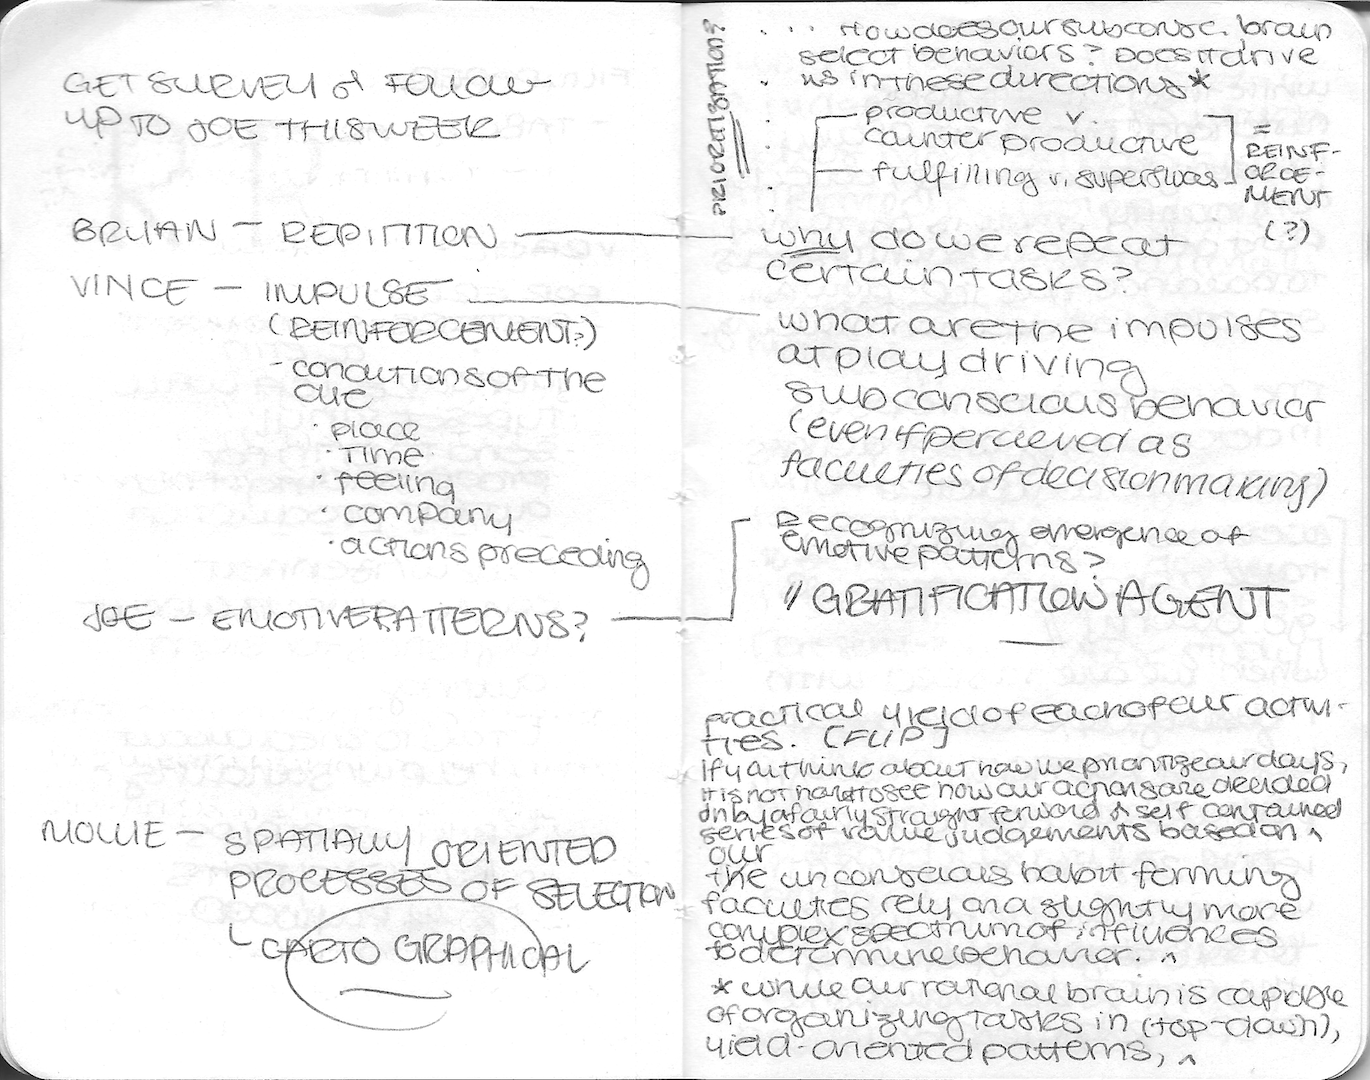 GET SURVEY & FOLLOW
UP TO JOE THIS WEEK
BRYAN — REPITITION
VINCE — IMPULSE
(REINFORCEMENT?)
- conditions of the
cue
· place
· time
· feeling
· company
· actions preceding
JOE — EMOTIVE PATTERNS?
MOLLIE — SPATIALLY ORIENTED
PROCESSES OF SELECTION
CARTOGRAPHICAL
PRIORITIZATION?
... How does our subconsc. brain
select behaviors? Does it drive
us in these directions*
— productive v.
counter productive
— fulfilling v. superfluous
= REINF-
ORCE-
MENT
(?)
why do we repeat
certain tasks?
what are the impulses
at play driving
subconscious behavior
(even if perceived as
faculties of decision making)
Recognizing emergence of
emotive patterns?
// GRATIFICATION AGENT
practical yield of each of our activi-
ties. [FLIP]
If you think about how we prioritize our days,
it is not hard to see how our actions are decided
on by a fairly straight forward & self contained
series of value judgements based on ^
our
the unconscious habit forming
faculties rely on a slightly more
complex spectrum of influences
to determine behavior. ^
* while our rational brain is capable
of organizing tasks in (top-down),
yield-oriented patterns, ^